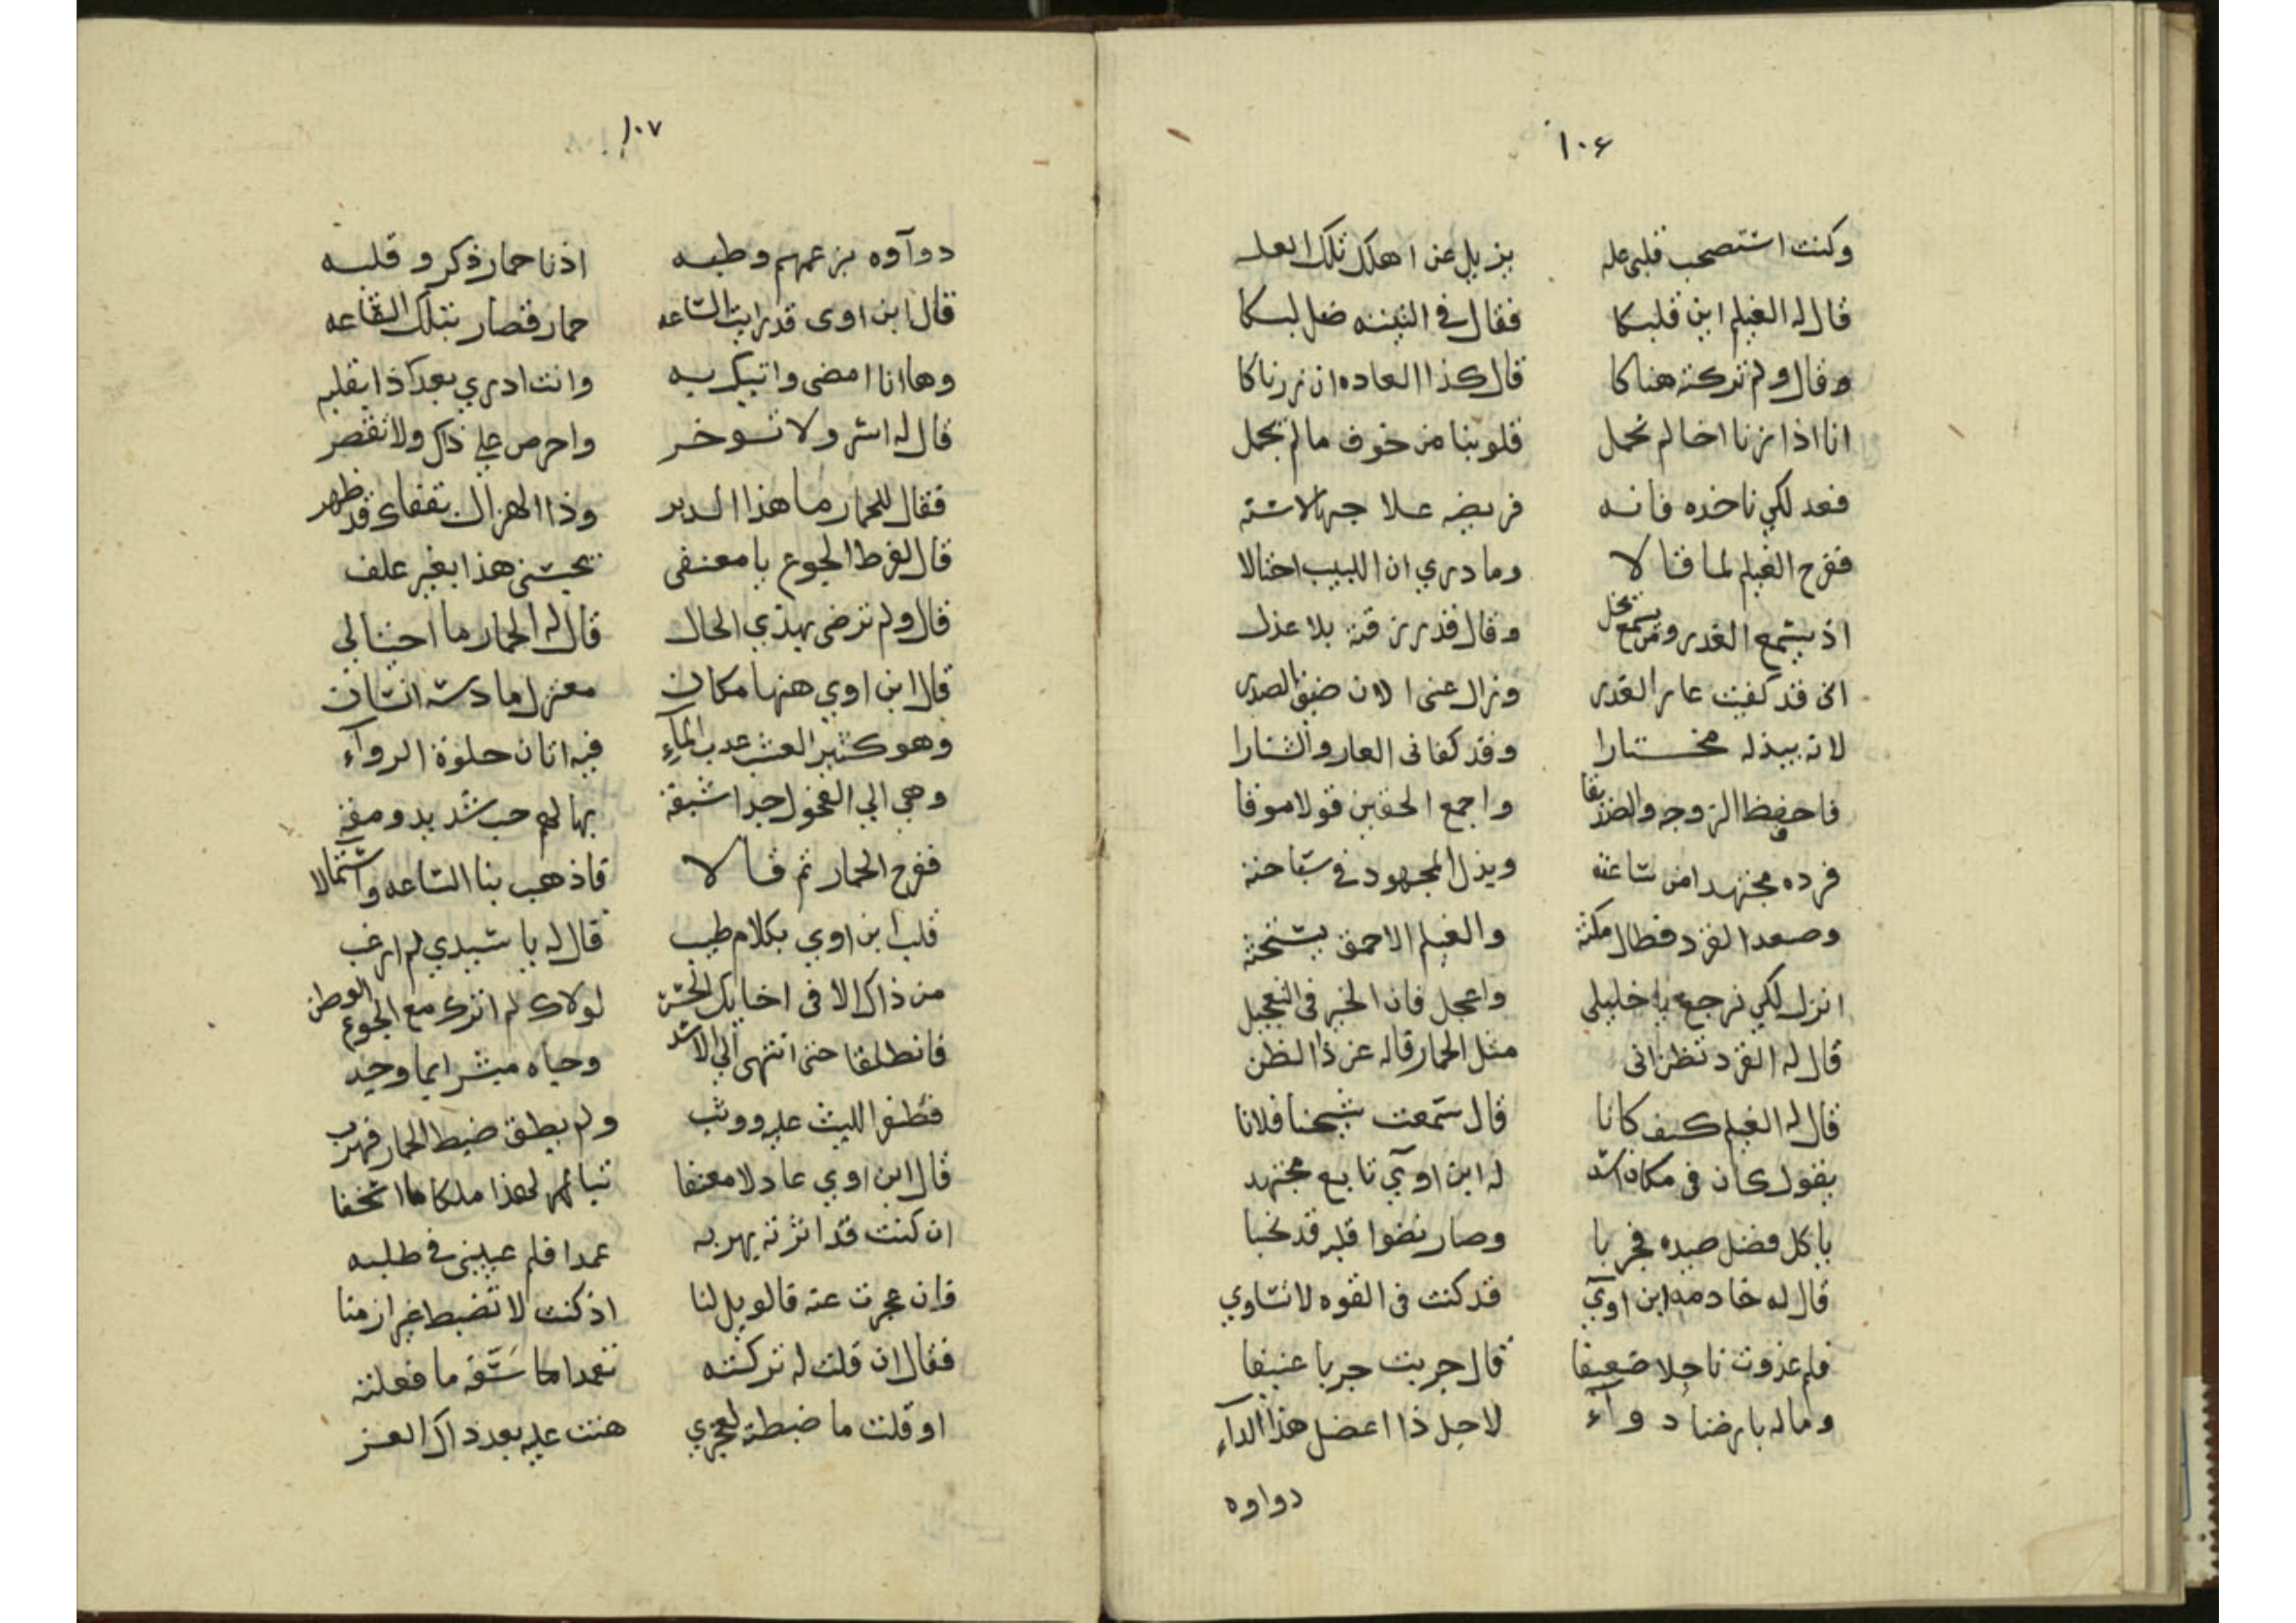 ١٠٦
وكنت استصحب قلبى عله يزيل عن اهلك تلك العله
قال له الغيلم اين قلبكا فقال فى البيت ضل لبكا
وقال ولم تركته هناكا قال كذا العاده ان زرناكا
انا اذا زرنا اخا لم نحمل قلوبنا من خوف ما لم يجمل
فعد لكي ناخده فانه
ففرح الغيلم لما قالا وما دري ان اللبيب احتالا
وقال قد رزقته بلا عذل
انى قد كفيت عار الغدر وزال عنى الان ضيق الصدر
لانه يبذله مختارا وقد كفانى العار والشنارا
فاحفظ الزوجه والصديقا واجمع الحقين قولا موفقا
فرده مجتهدا من ساعته وبذل المجهود فى سباحته
وصعد القرد فطال مكثه والغيلم الاحمق يستحثه
انزل لكي نرجع يا خليلي واعجل فان الخير فى التعجيل
قال له القرد تظن انى مثل الحمار قاله عن ذا الظن
قال له الغيلم كيف كانا قال سمعت شيخنا فلانا
يقول كان فى مكان اسد له ابن اوي تابع مجتهد
ياكل فضل صيده فجربا وصار نضوا قلبه قد نخبا
قال له خادمه ابن اوي قد كنت فى القوه لا تساوي
فلم غدوت ناحلا ضعيفا قال جربت جربا عنيفا
وما له بارضنا دوآء لاجل ذا اعضل هذا الدآء
دواوه
١٠٧
دوآوه بزعمهم وطبه اذنا حمار ذكر وقلبه
قال ابن اوى قد رايت الساعه حمار قصار بتلك القاعه
وها انا امضى واتيك به وانت ادري بعد كذا بقلبه
قال له اسر ولا توخر واحرص علي ذاك ولا تقصر
فقال للحمار ما هذا الدبر وذا الهزال قد ظهر
قال لفرط الجوع يا معنفى بغير علف
قال ولم ترضى بهذي الحال قال له الحمار ما احتيالي
قال ابن اوي ههنا مكان معزل ما دسه انسان
وهو كثير العشب عدب المآء فيه اتان حلوة الروآء
وهي الي الفحول جدا شبقه بها لهم حب شديد ومقه
ففرح الحمار ثم قالا فاذهب بنا الساعه
ابن اوي بكلام طيب قال له يا سيدي لم ارغب
من ذاك الا فى اخايك الحسن لولاك لم اترك مع الجوع الوطن
فانطلقا حتى انتهى الي الاسد وحياه مبشرا بما وجد
الليث عليه ووثب ولم يطق ضبط الحمار فهرب
قال ابن اوي عاذلا معنفا
ان كنت قد اثرته يهر به عمدا فلم عييتنى فى طلبه
فان عجزت عنه فالويل لنا اذ كنت لا تضبط عيرا زمنا
فقال ان قلت له تركته تعمدا سفه ما فعلته
او قلت ما ضبطته لعجزي هنت عليه بعد ذاك العز